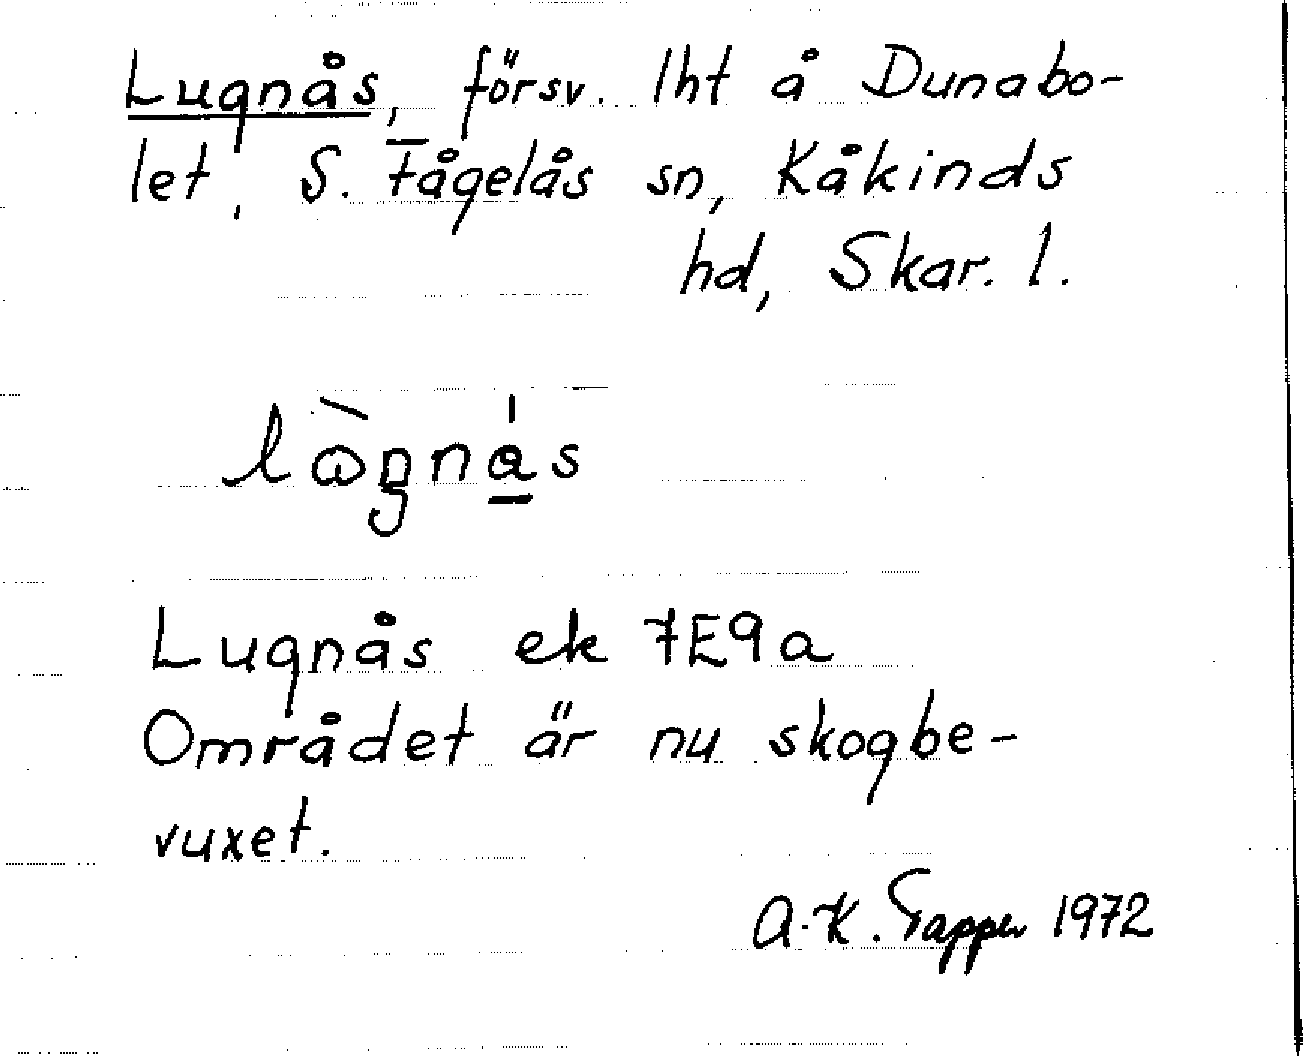 Lugnås, försv. lht å Dunabo-
let, S. Fågelås sn, Kåkinds
hd, Skar. l.
Lugnås ek 7E9a
Området är nu skogbe-
vuxet.
A.-K. Tapper 1972